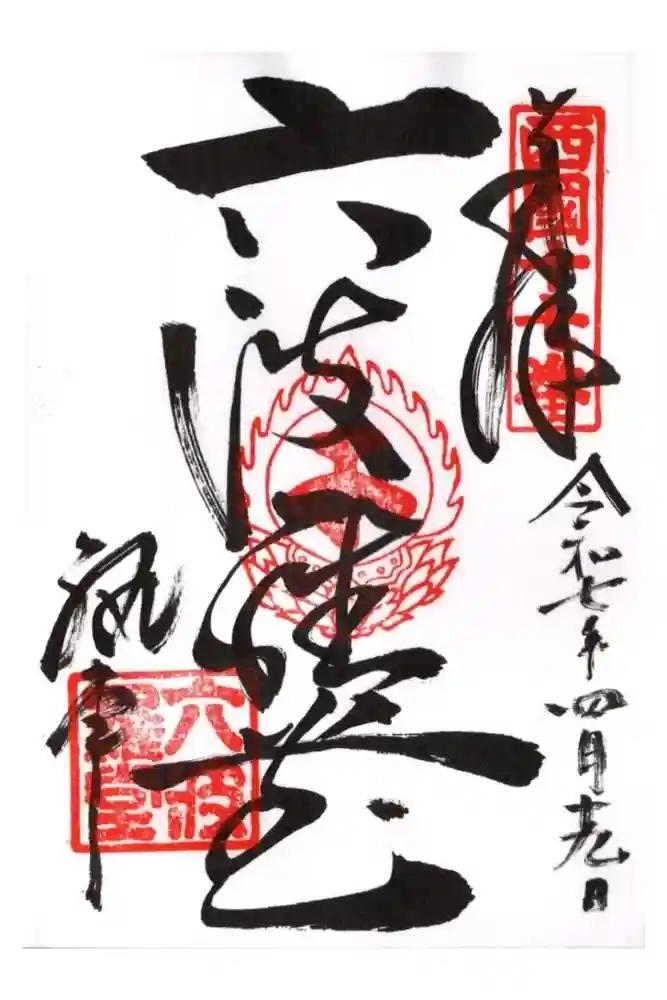 奉拝
西國十七番
令和七年四月廿九日
六波羅堂
六波羅堂